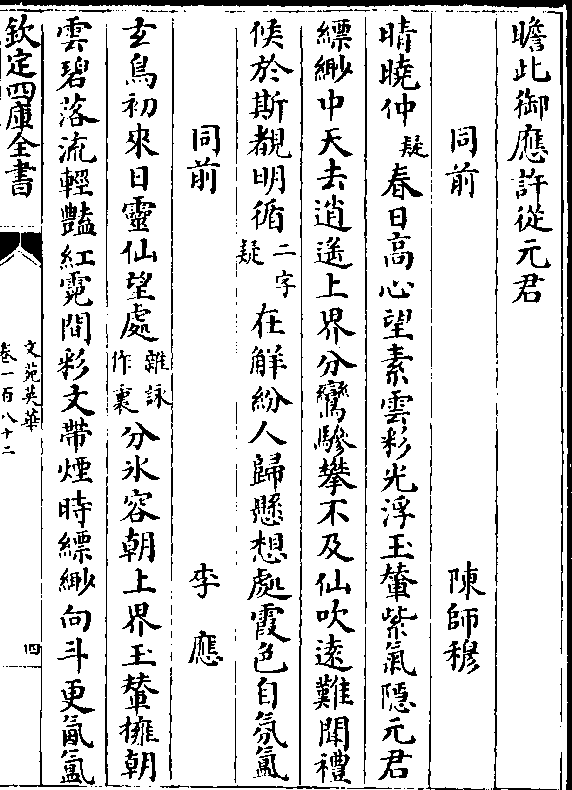 瞻此御應許從元君
同前　陳師穆
晴曉仲疑春日高心望素雲彩光浮玉輦紫氣隱元君
縹緲中天去逍遥上界分鸞驂攀不及仙吹遠難聞禮
候於斯覩明循二字疑在解紛人歸懸想處霞色自氛氲
同前　李應
玄鳥初來日靈仙望處雜詠作裏分氷容朝上界玉輦擁朝
雲碧落流輕豔紅霓間彩文帶煙時縹緲向斗更氤氲
欽定四庫全書
文苑英華
卷一百八十二
四